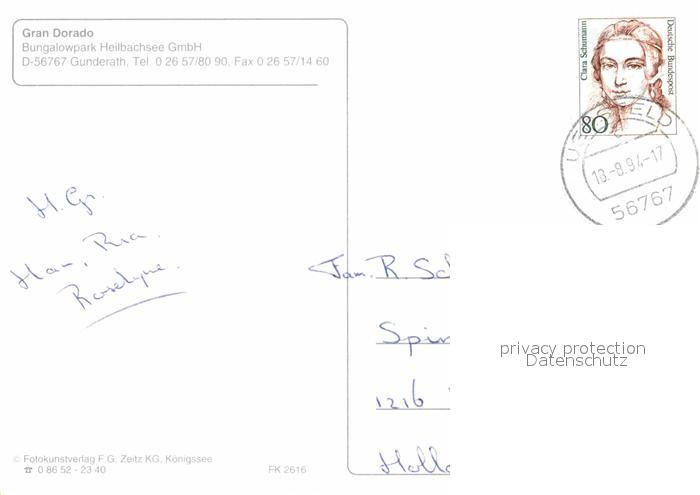 Gran Dorado
Bungalowpark Heilbachsee GmbH
D-56767 Gunderath, Tel. 0 26 57/80 90, Fax 0 26 57/14 60
Clara Schumann
Deutsche Bundespost
80
18.-8.94-17
56767
H. Gr.
Han, Ria.
Roselyne.
Fam. R. Sc
Spin
1216
Holl
privacy protection
Datenschutz
© Fotokunstverlag F.G. Zeitz KG, Königssee
☎ 0 86 52 - 23 40
FK 2616